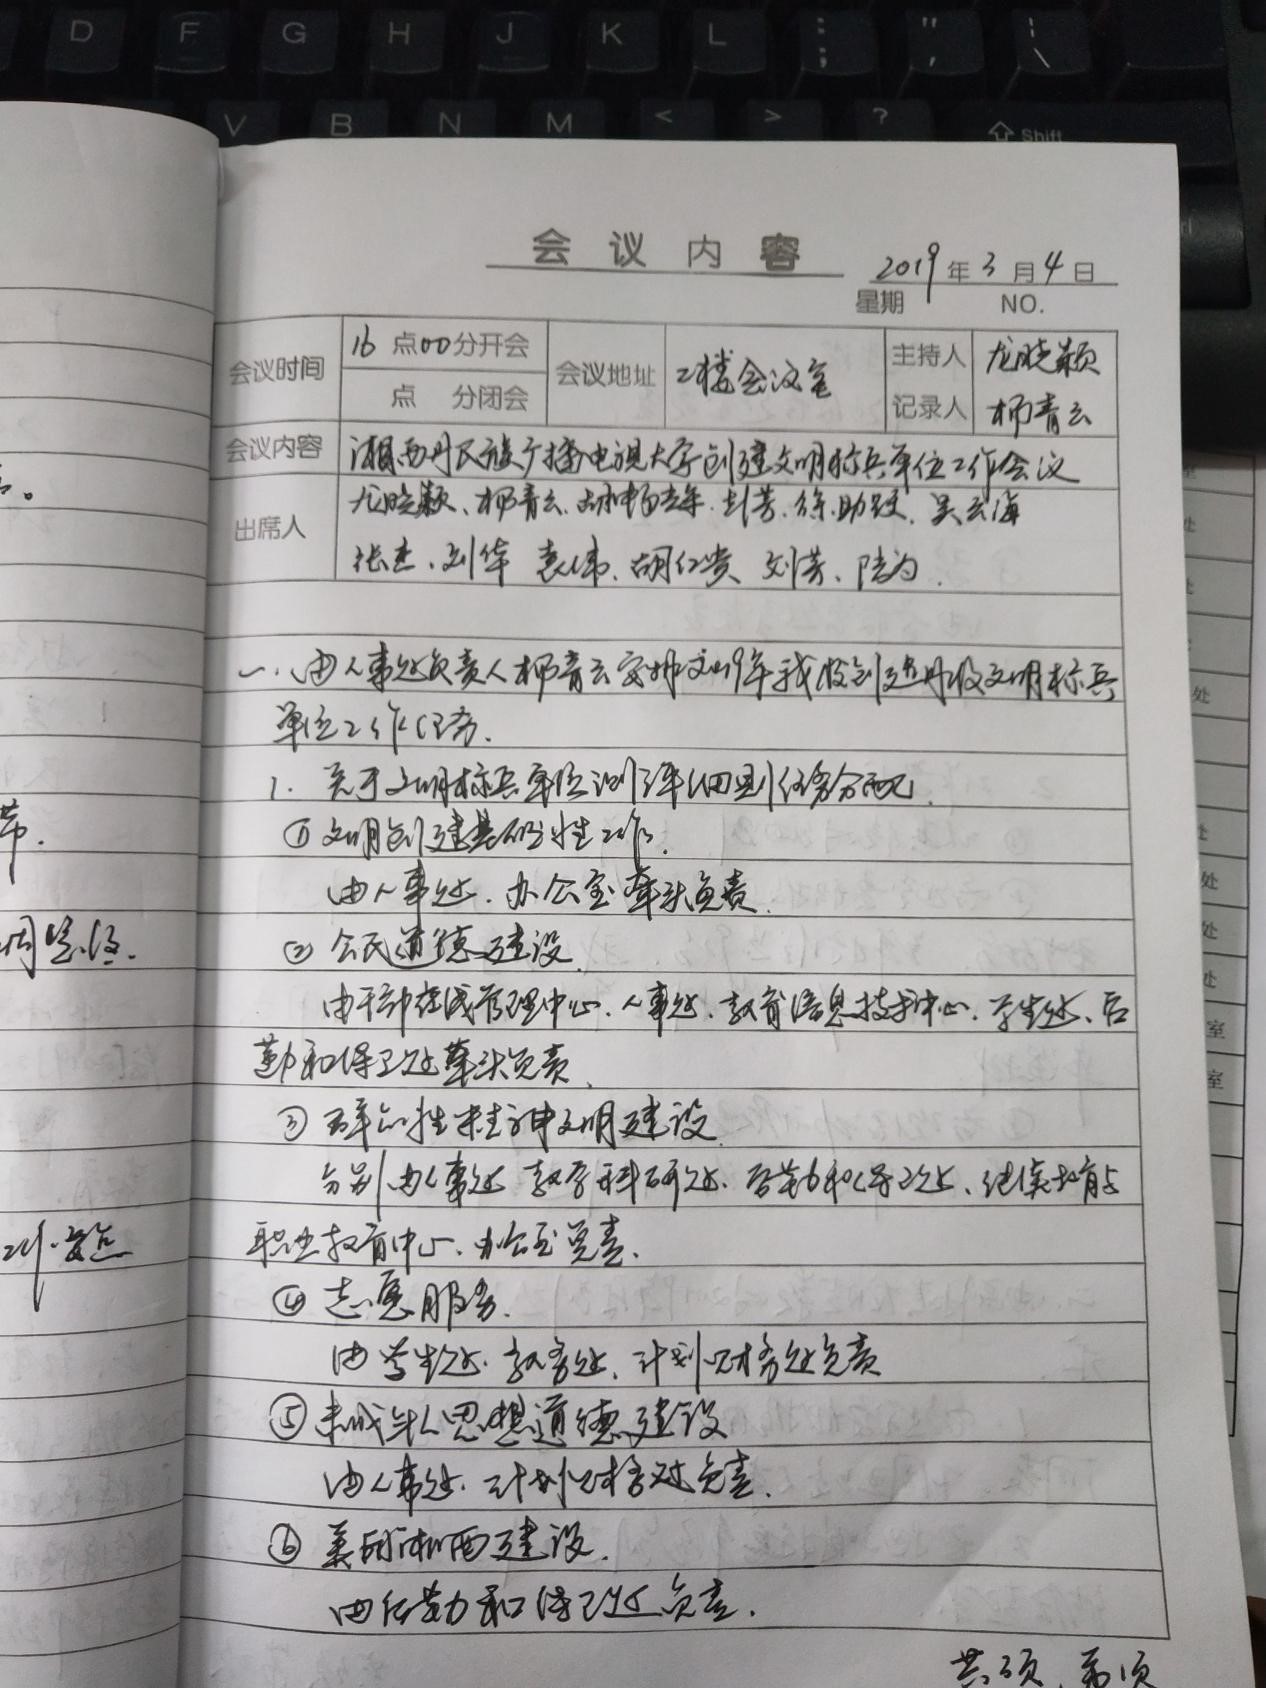 D F G H J K L : ; " ' | \
V B N M < > ? Shift
会议内容
2019年3月4日
星期 NO.
会议时间 16点00分开会 会议地址 2楼会议室 主持人 龙晓颖
点 分闭会 记录人 柳青云
会议内容 湘西州民族广播电视大学创建文明标兵单位工作会议
出席人 龙晓颖、柳青云、彭芳、徐助跃、吴云海
张杰、刘华 袁伟、胡仁贵 刘芳、陆为.
一、由人事处负责人柳青云安排2019年我校创建州级文明标兵
单位工作任务.
1. 关于文明标兵单位测评细则任务分配.
①文明创建基础性工作.
由人事处、办公室牵头负责.
②公民道德建设.
由干部在线管理中心、人事处、教育信息技术中心、学生处、后
勤和保卫处牵头负责.
③群众性精神文明建设.
分别由人事处 教学科研处、后勤和保卫处、继续教育与
职业教育中心、办公室负责.
④志愿服务.
由学生处、教务处、计划财务处负责
⑤未成年人思想道德建设
由人事处、计划财务处负责.
⑥美丽湘西建设.
由后勤和保卫处负责.
共 页 第 页
周
处
处
处
处
处
处
室
室